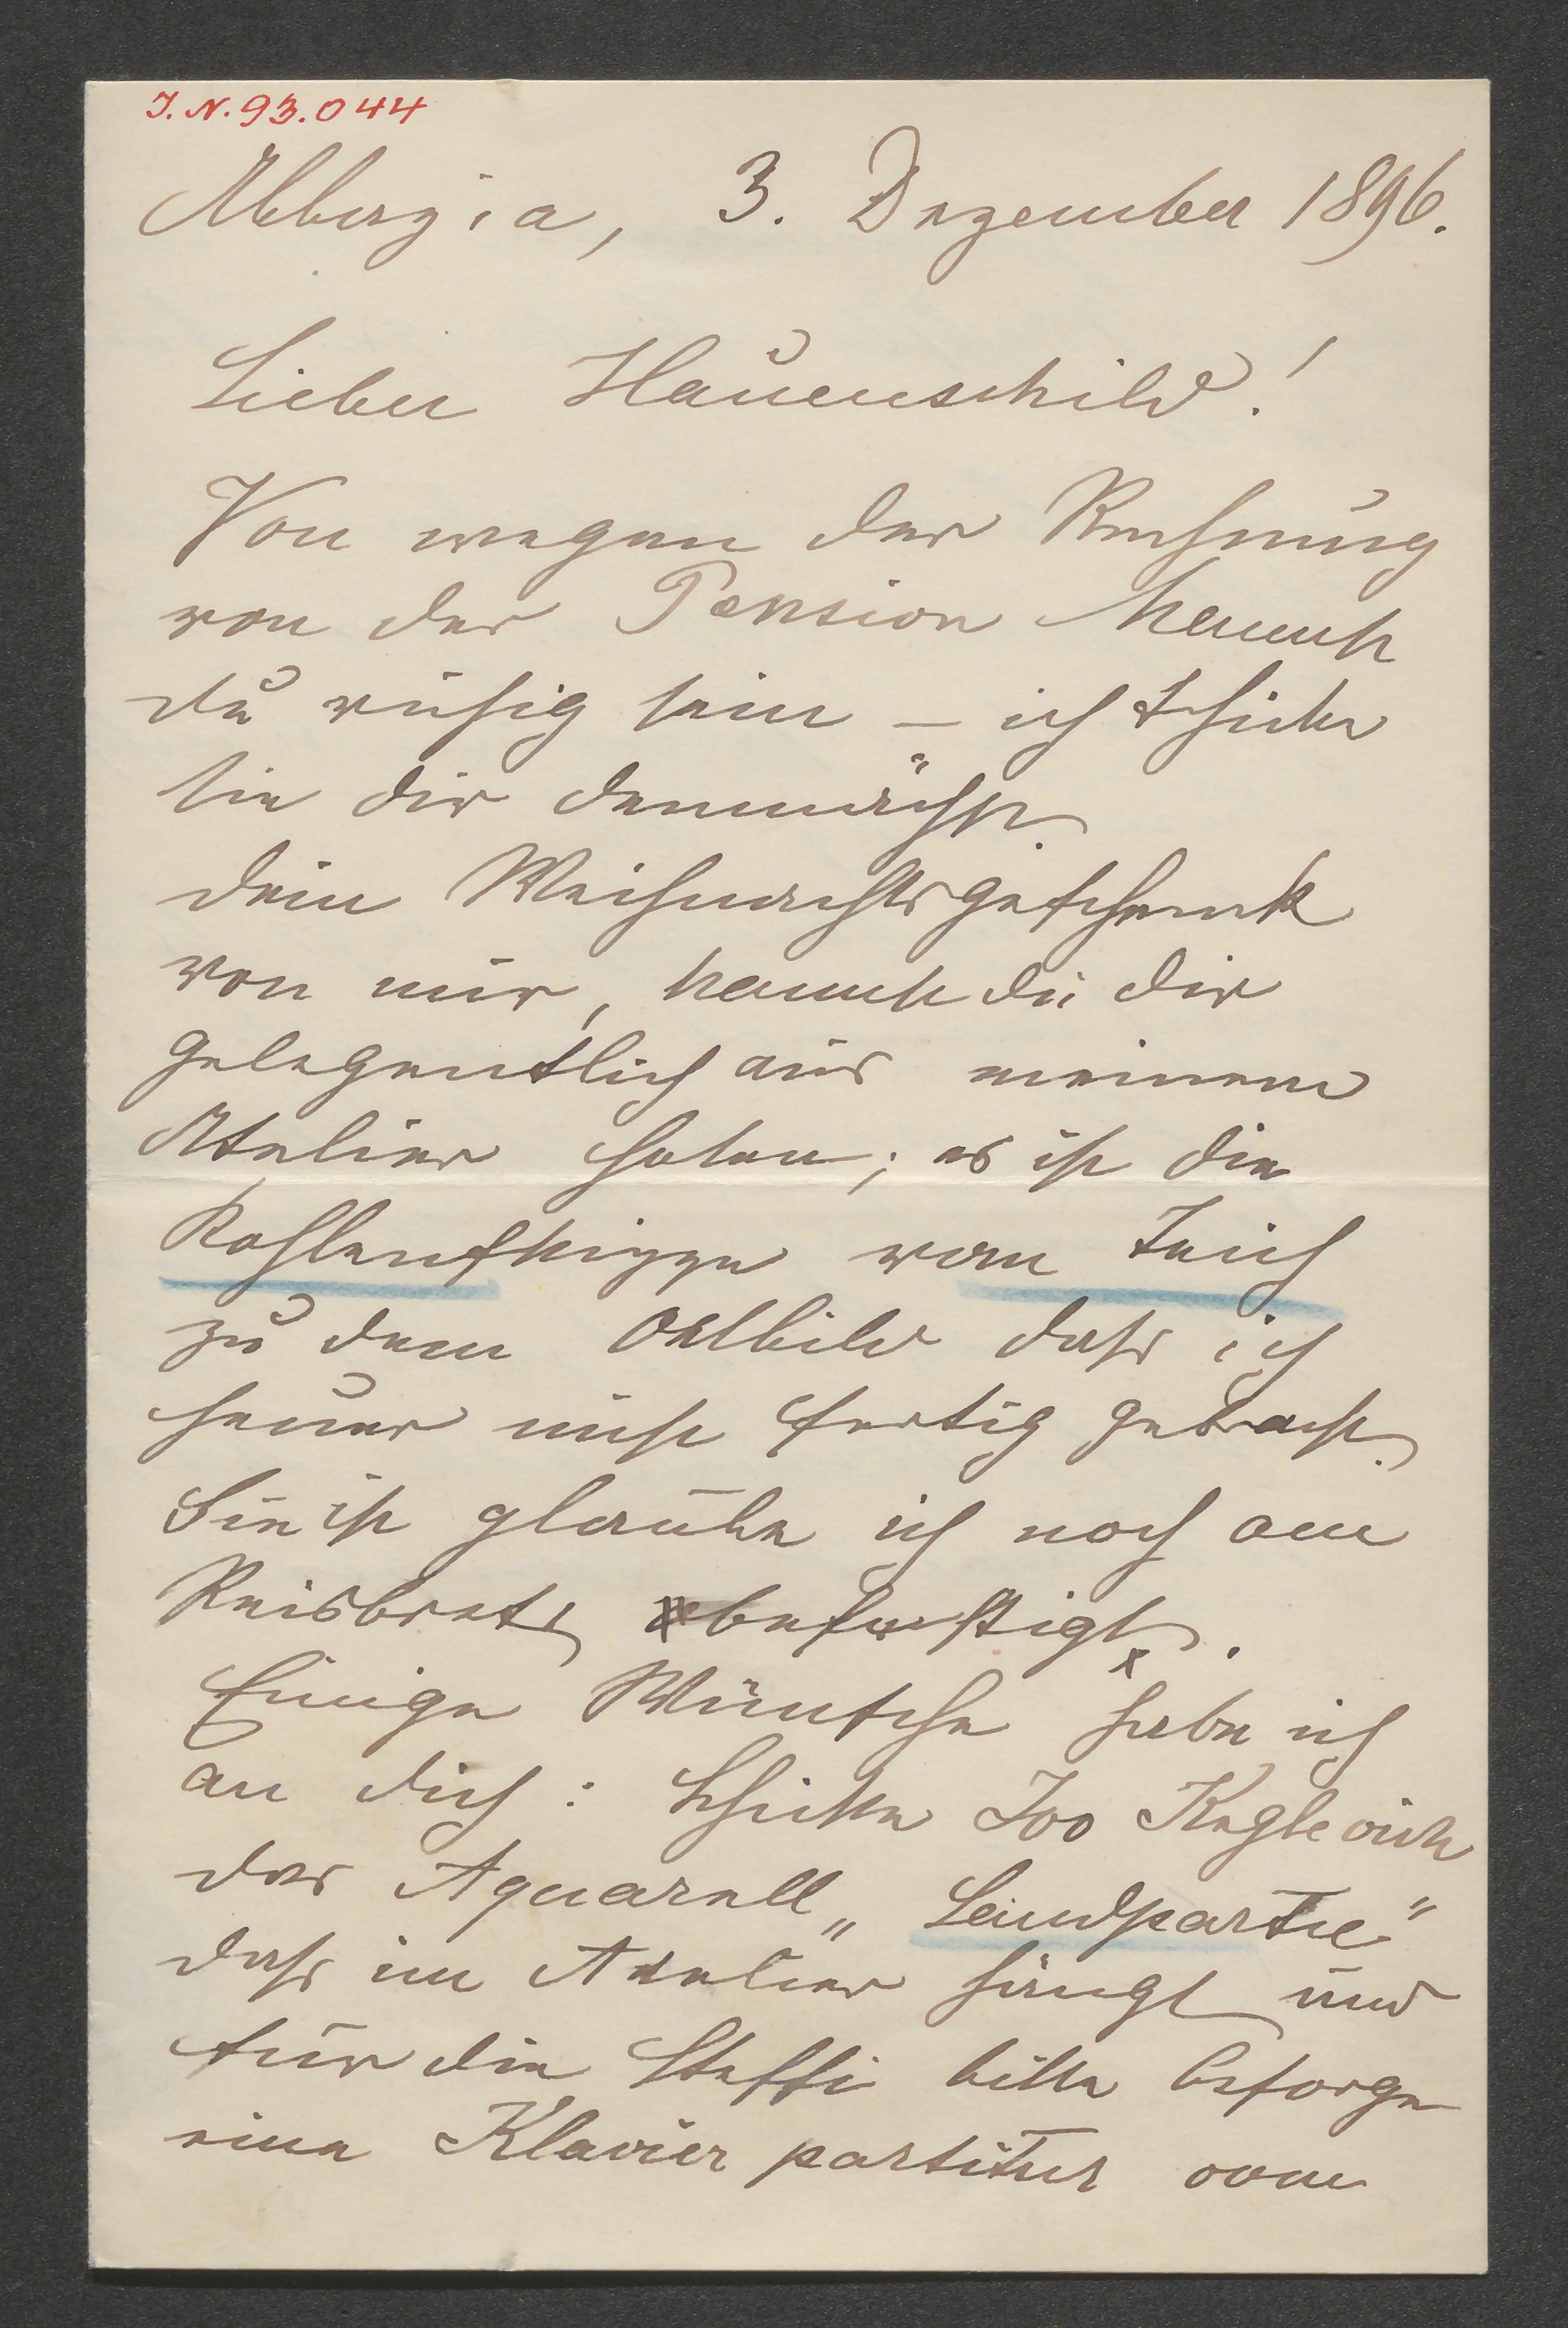 I. N. 93.044
Abbazia, 3. Dezember 1896.
Lieber Hauenschild!
Von wegen der Rechnung
von der Pension kannst
du ruhig sein – ich schicke
sie dir demnächst.
Dein Weihnachtsgeschenk
von mir, kannst du dir
gelegentlich aus meinem
Atelier holen; es ist die
Kohlenskizze vom Teich
zu dem Oelbild dass ich
heuer nicht fertig gebracht.
Sie ist glaube ich noch am
Reisbrett befestigt.
Einige Wünsche habe ich
an dich: Schicke Ivo
das Aquarell „Landpartie“
dass im Atelier hängt und
für die Steffi bitte besorge
eine Klavierpartitur vom